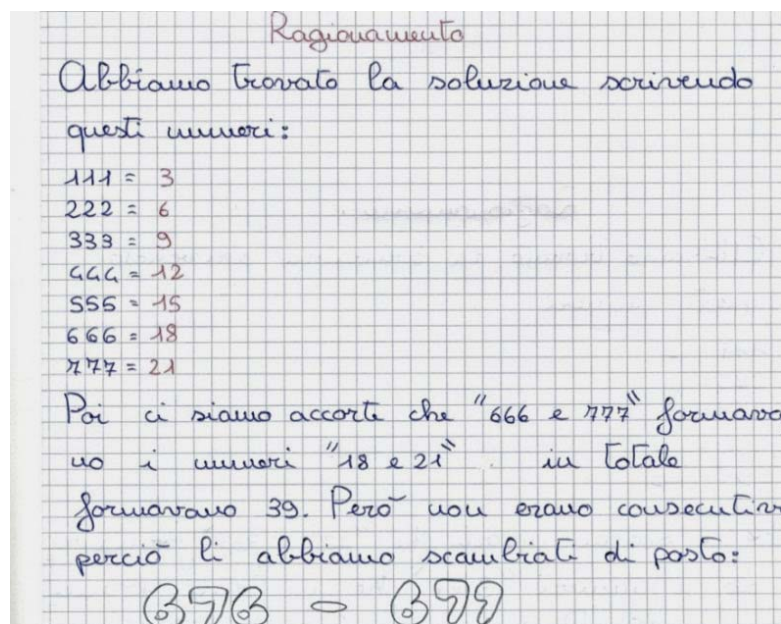 Ragionamento
Abbiamo trovato la soluzione scrivendo
questi numeri:
111 = 3
222 = 6
333 = 9
444 = 12
555 = 15
666 = 18
777 = 21
Poi ci siamo accorte che "666 e 777" formava
no i numeri "18 e 21" in totale
formavano 39. Però non erano consecutivi
perciò li abbiamo scambiati di posto:
676 - 677